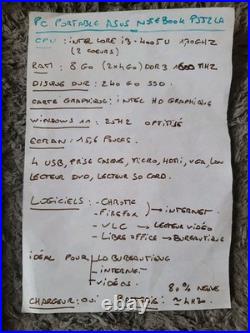 PC PORTABLE ASUS NOTEBOOK P552LA
CPU : INTEL CORE i3-4005U 1,70GHZ
(2 COEURS)
RAM : 8 GO (2x4GO) DDR3 1600 MHZ
DISQUE DUR : 240 GO SSD
CARTE GRAPHIQUE : INTEL HD GRAPHIQUE
WINDOWS 11 - 25H2 OPTIMISÉ
ECRAN : 15,6 POUCES
4 USB, PRISE CASQUE, MICRO, HDMI, VGA, LAN
LECTEUR DVD, LECTEUR SD CARD.
LOGICIELS : - CHROME
- FIREFOX ) → INTERNET
- VLC → LECTEUR VIDÉO
- LIBRE OFFICE → BUREAUTIQUE
IDÉAL POUR : LA BUREAUTIQUE
INTERNET
VIDÉOS.
80% NEUVE
CHARGEUR : OUI BATTERIE : ≈ 4H20
www.watizon.com